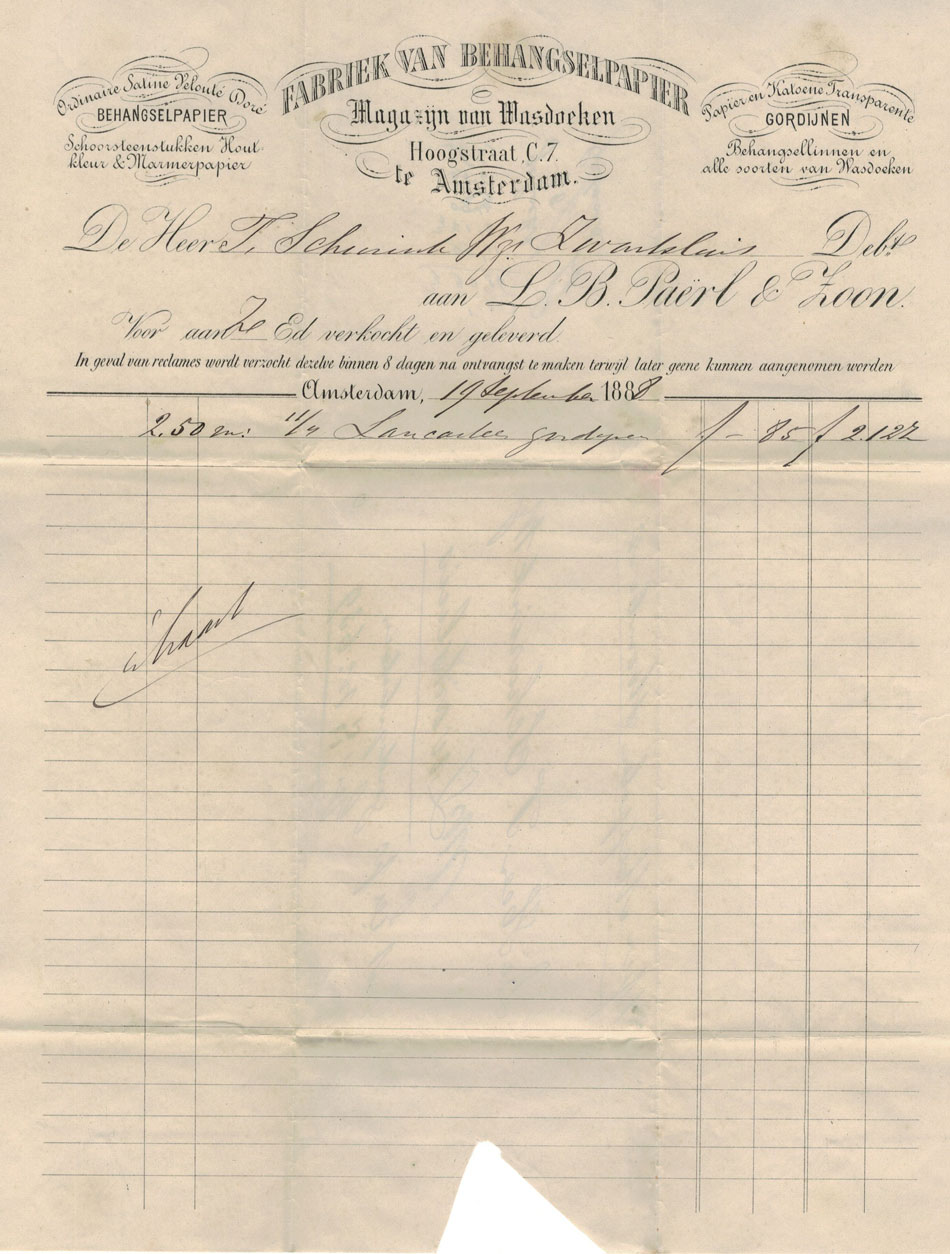 FABRIEK VAN BEHANGSELPAPIER
Magazijn van Wasdoeken
Hoogstraat, C. 7.
te Amsterdam.
Ordinaire Satine Velouté Doré
BEHANGSELPAPIER
Schoorsteenstukken Hout
kleur & Marmerpapier
Papier en Katoene Transparente
GORDIJNEN
Behangsellinnen en
alle soorten van Wasdoeken
De Heer T. Zwartsluis Debt.
aan L. B. Paërl & Zoon.
Voor aan Ed verkocht en geleverd
In geval van reclames wordt verzocht dezelve binnen 8 dagen na ontvangst te maken terwijl later geene kunnen aangenomen worden
Amsterdam, 19 September 1888
2.50 m: 11/4 Lancaster gordijnen f - 85 f 2.12½